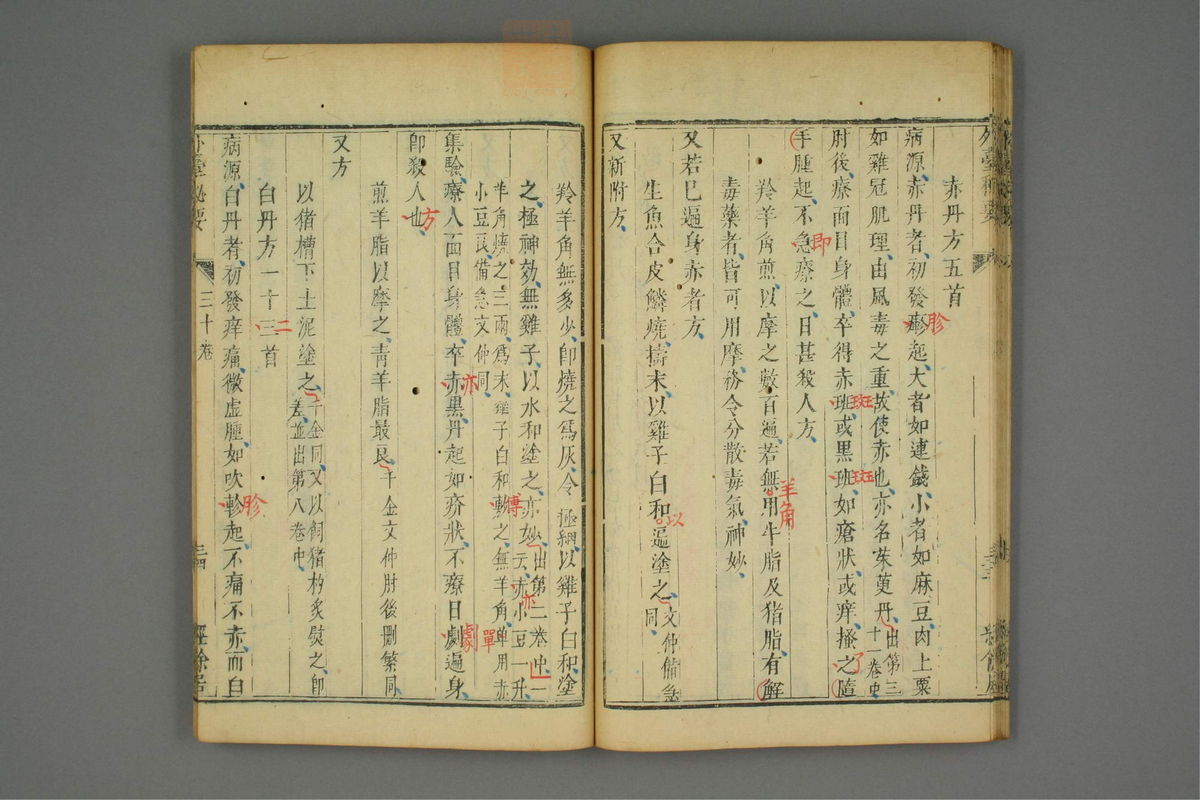 赤丹方五首
病源赤丹者初發𤺋起大者如連錢小者如麻豆肉上粟
胗
如雞冠肌理由風毒之重故使赤也亦名茱萸丹出第三十一卷中
肘後療面目身體卒得赤班或黑班如瘡狀或痒搔之隨
斑
斑
了
手腫起不急療之日甚殺人方
即
羚羊角煎以摩之數百遍若無用牛脂及猪脂有解
羊角
毒藥者皆可用摩務令分散毒氣神妙
又若已遍身赤者方
生魚合皮鱗燒擣末以雞子白和遍塗之文仲備急同
以
又新附方
羚羊角無多少即燒之爲灰令極細以雞子白和塗
之極神効無雞子以水和塗之亦妙出第二卷中一云赤小豆一升
亦
羊角燒之三兩爲末雞子白和𫾣之無羊角單用赤
傅
小豆良備急文仲同
集驗療人面目身體卒赤黑丹起如疥狀不療日劇遍身
亦
單
劇
即殺人也
方
煎羊脂以摩之青羊脂最良千金文仲肘後刪繁同
又方
以猪槽下土泥塗之千金同又以飼猪杓炙熨之即差並出第八卷中
白丹方一十三首
二
病源白丹者初發痒痛微虛腫如吹軫起不痛不赤而白
胗
外臺秘要
三十卷
三四
經餘居